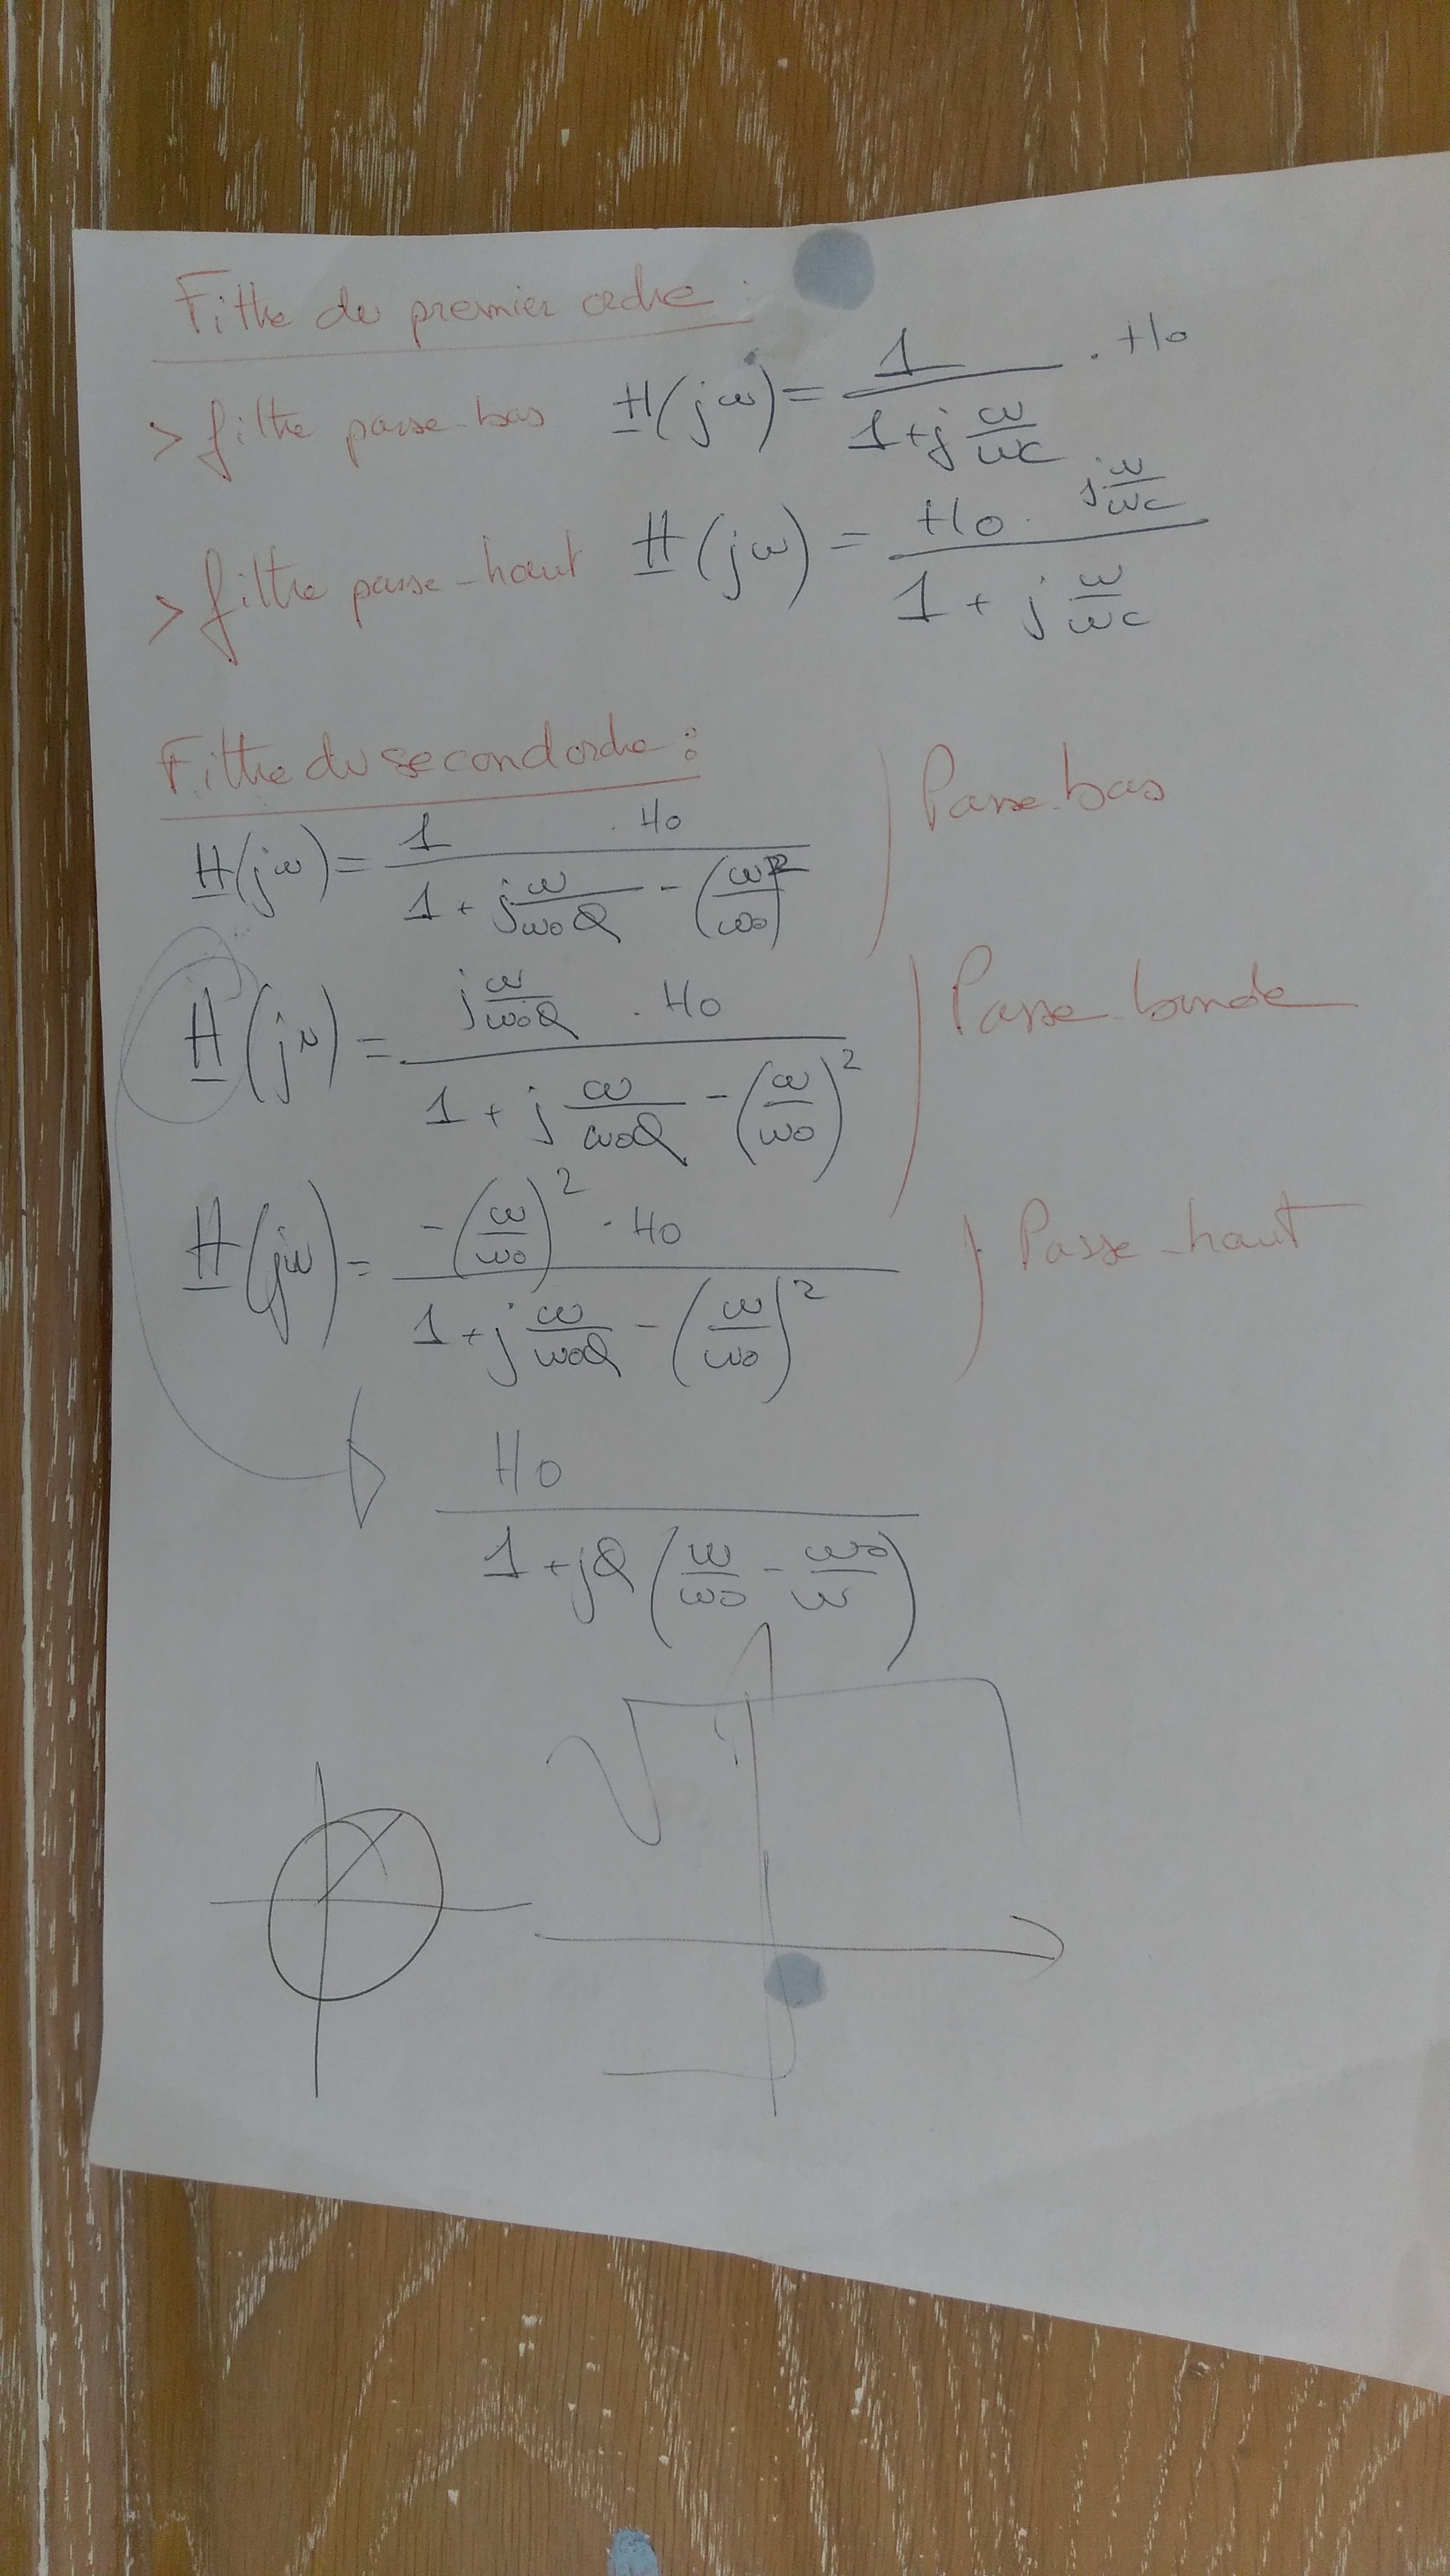 Filtre du premier ordre :
> filtre passe-bas H(jω) = 1/(1+j ω/ωc) . Ho
> filtre passe-haut H(jω) = (Ho . j ω/ωc)/(1 + j ω/ωc)
Filtre du second ordre :
H(jω) = (1 . Ho)/(1 + j ω/(ωoQ) - (ω/ωo)²) Passe-bas
H(jω) = (j ω/(ωoQ) . Ho)/(1 + j ω/(ωoQ) - (ω/ωo)²) Passe-bande
H(jω) = (-(ω/ωo)² . Ho)/(1 + j ω/(ωoQ) - (ω/ωo)²) Passe-haut
Ho/(1 + jQ(ω/ωo - ωo/ω))